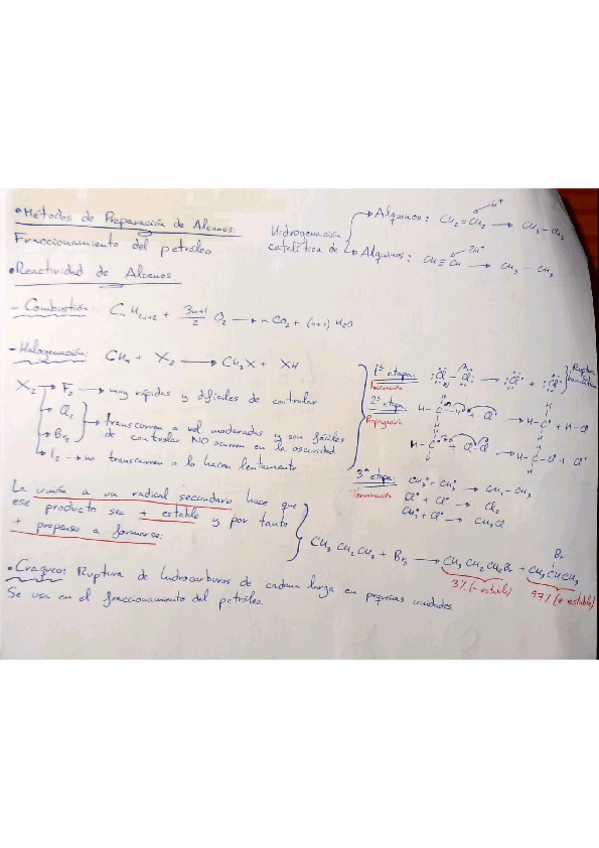 • Métodos de Preparación de Alcanos:
Fraccionamiento del petróleo
Hidrogenación catalítica de
→ Alquenos: CH₂ = CH₂ → CH₃ – CH₃
→ Alquinos: CH ≡ CH → CH₃ – CH₃
• Reactividad de Alcanos
– Combustión: CnH2n+2 + 3n+1/2 O₂ → n CO₂ + (n+1) H₂O
– Halogenación: CH₄ + X₂ → CH₃X + XH
X₂ → F₂ → muy rápidas y difíciles de controlar
→ Cl₂
→ Br₂
→ transcurren a vel. moderadas y son fáciles
de controlar NO ocurren en la oscuridad
→ I₂ → no transcurren o lo hacen lentamente
1ª etapa: Cl – Cl → Cl• + Cl•
Iniciación
Ruptura homolítica
2ª etapa:
Propagación
H – C – H + Cl• → H – C• + H – Cl
H – C• + Cl – Cl → H – C – Cl + Cl•
3ª etapa:
Terminación
CH₃• – CH₃• → CH₃ – CH₃
Cl• + Cl• → Cl₂
CH₃• + Cl• → CH₃Cl
La unión a un radical secundario hace que
ese producto sea + estable y por tanto
+ propenso a formarse:
CH₃ CH₂ CH₃ + Br₂ → CH₃ CH₂ CH₂Br + CH₃ CHCH₃
Br
3% (– estable)
97% (+ estable)
• Craqueo: Ruptura de hidrocarburos de cadena larga en pequeñas unidades.
Se usa en el fraccionamiento del petróleo.